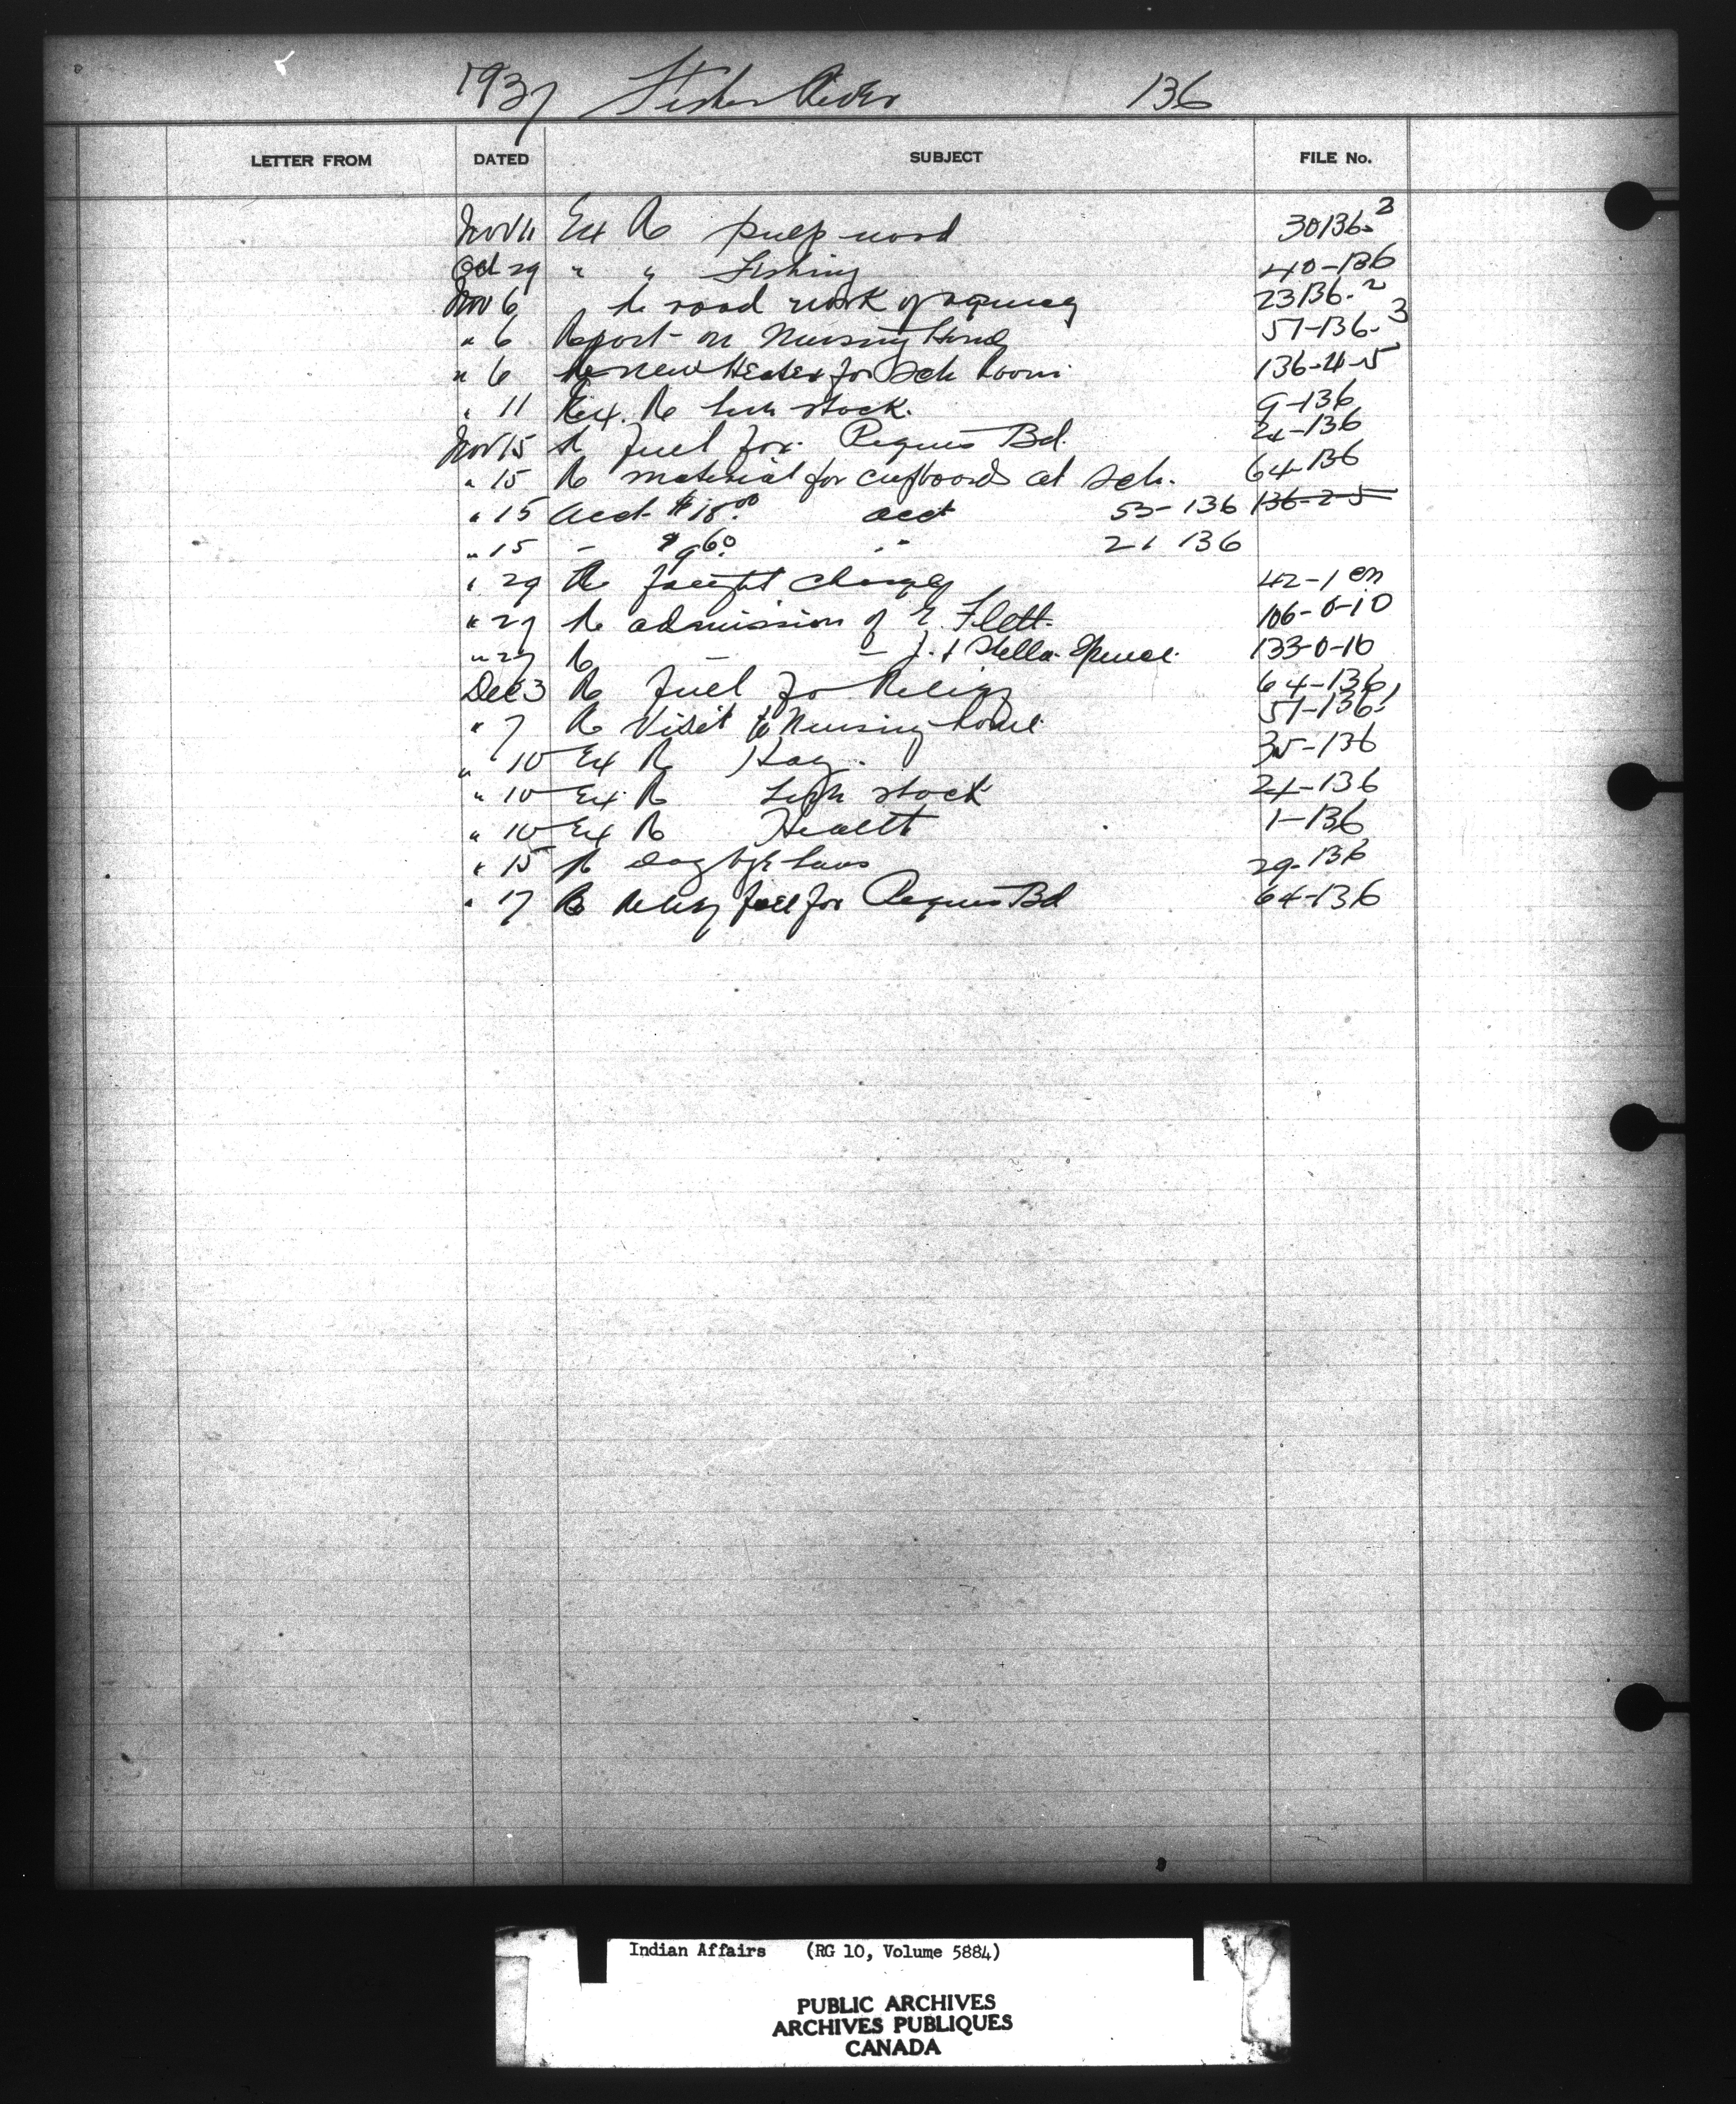 1937 Fisher River 136
LETTER FROM DATED SUBJECT FILE No.
Nov 11 Ex Re pulp wood 30136-3
Oct 29 " " Fishing 40-136
Nov 6 Re road work of agency 23136-2
" 6 Report on Nursing Home 57-136-3
" 6 Re new Heater for Sch Room 136-4-5
" 11 Ex. Re stock. 9-136
Nov 15 Re fuel for Peguis Bd. 24-136
" 15 Re material for cupboards at Sch. 64-136
" 15 Acct $18.00 acct 53-136 136-2-5
" 15 - $9.60 " 21 136
" 29 Re freight charges 42-1
" 29 Re admission of E. Flett. 106-0-10
" 27 Re — — J. & Stella Spence. 133-0-10
Dec 3 Re fuel for Relief 64-136
" 7 Re Visit to Nursing home 57-136
" 10 Ex Re Hay. 35-136
" 10 Ex. Re stock 24-136
" 10 Ex Re Health 1-136
" 15 Re dog bye laws 29-136
" 17 Re Relief fuel for Peguis Bd 64-136
Indian Affairs (RG 10, Volume 5884)
PUBLIC ARCHIVES
ARCHIVES PUBLIQUES
CANADA